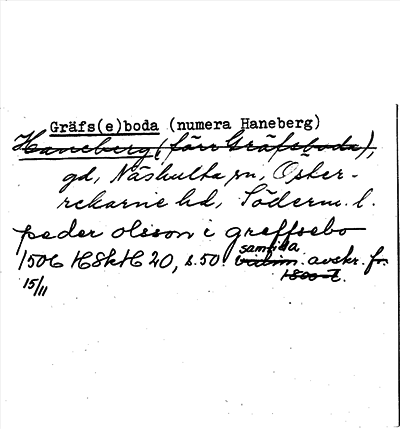 Gräfs(e)boda (numera Haneberg)
Haneberg (förr Gräfseboda),
gd, Näshulta sn, Öster-
rekarne hd, Söderm. l.
peder olsson i greffsebo
1506 HSkH 20, s. 50. samtida avskr. fr.
15/11 1800-t.